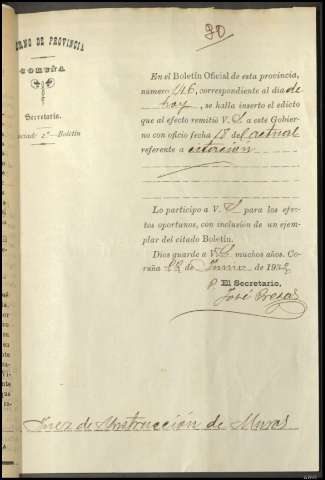 90
ERNO DE PROVINCIA
CORUÑA
Secretaría.
ociado 2º—Boletín
En el Boletín Oficial de esta provincia,
número 146, correspondiente al día de
hoy, se halla inserto el edicto
que al efecto remitió V. S a este Gobier-
no con oficio fecha 18 del actual
referente a citación
Lo participo a V. S para los efec-
tos oportunos, con inclusión de un ejem-
plar del citado Boletín.
Dios guarde a V. S. muchos años. Co-
ruña 22 de Junio de 192
P. El Secretario,
José Presas
Juez de Instrucción de Muros